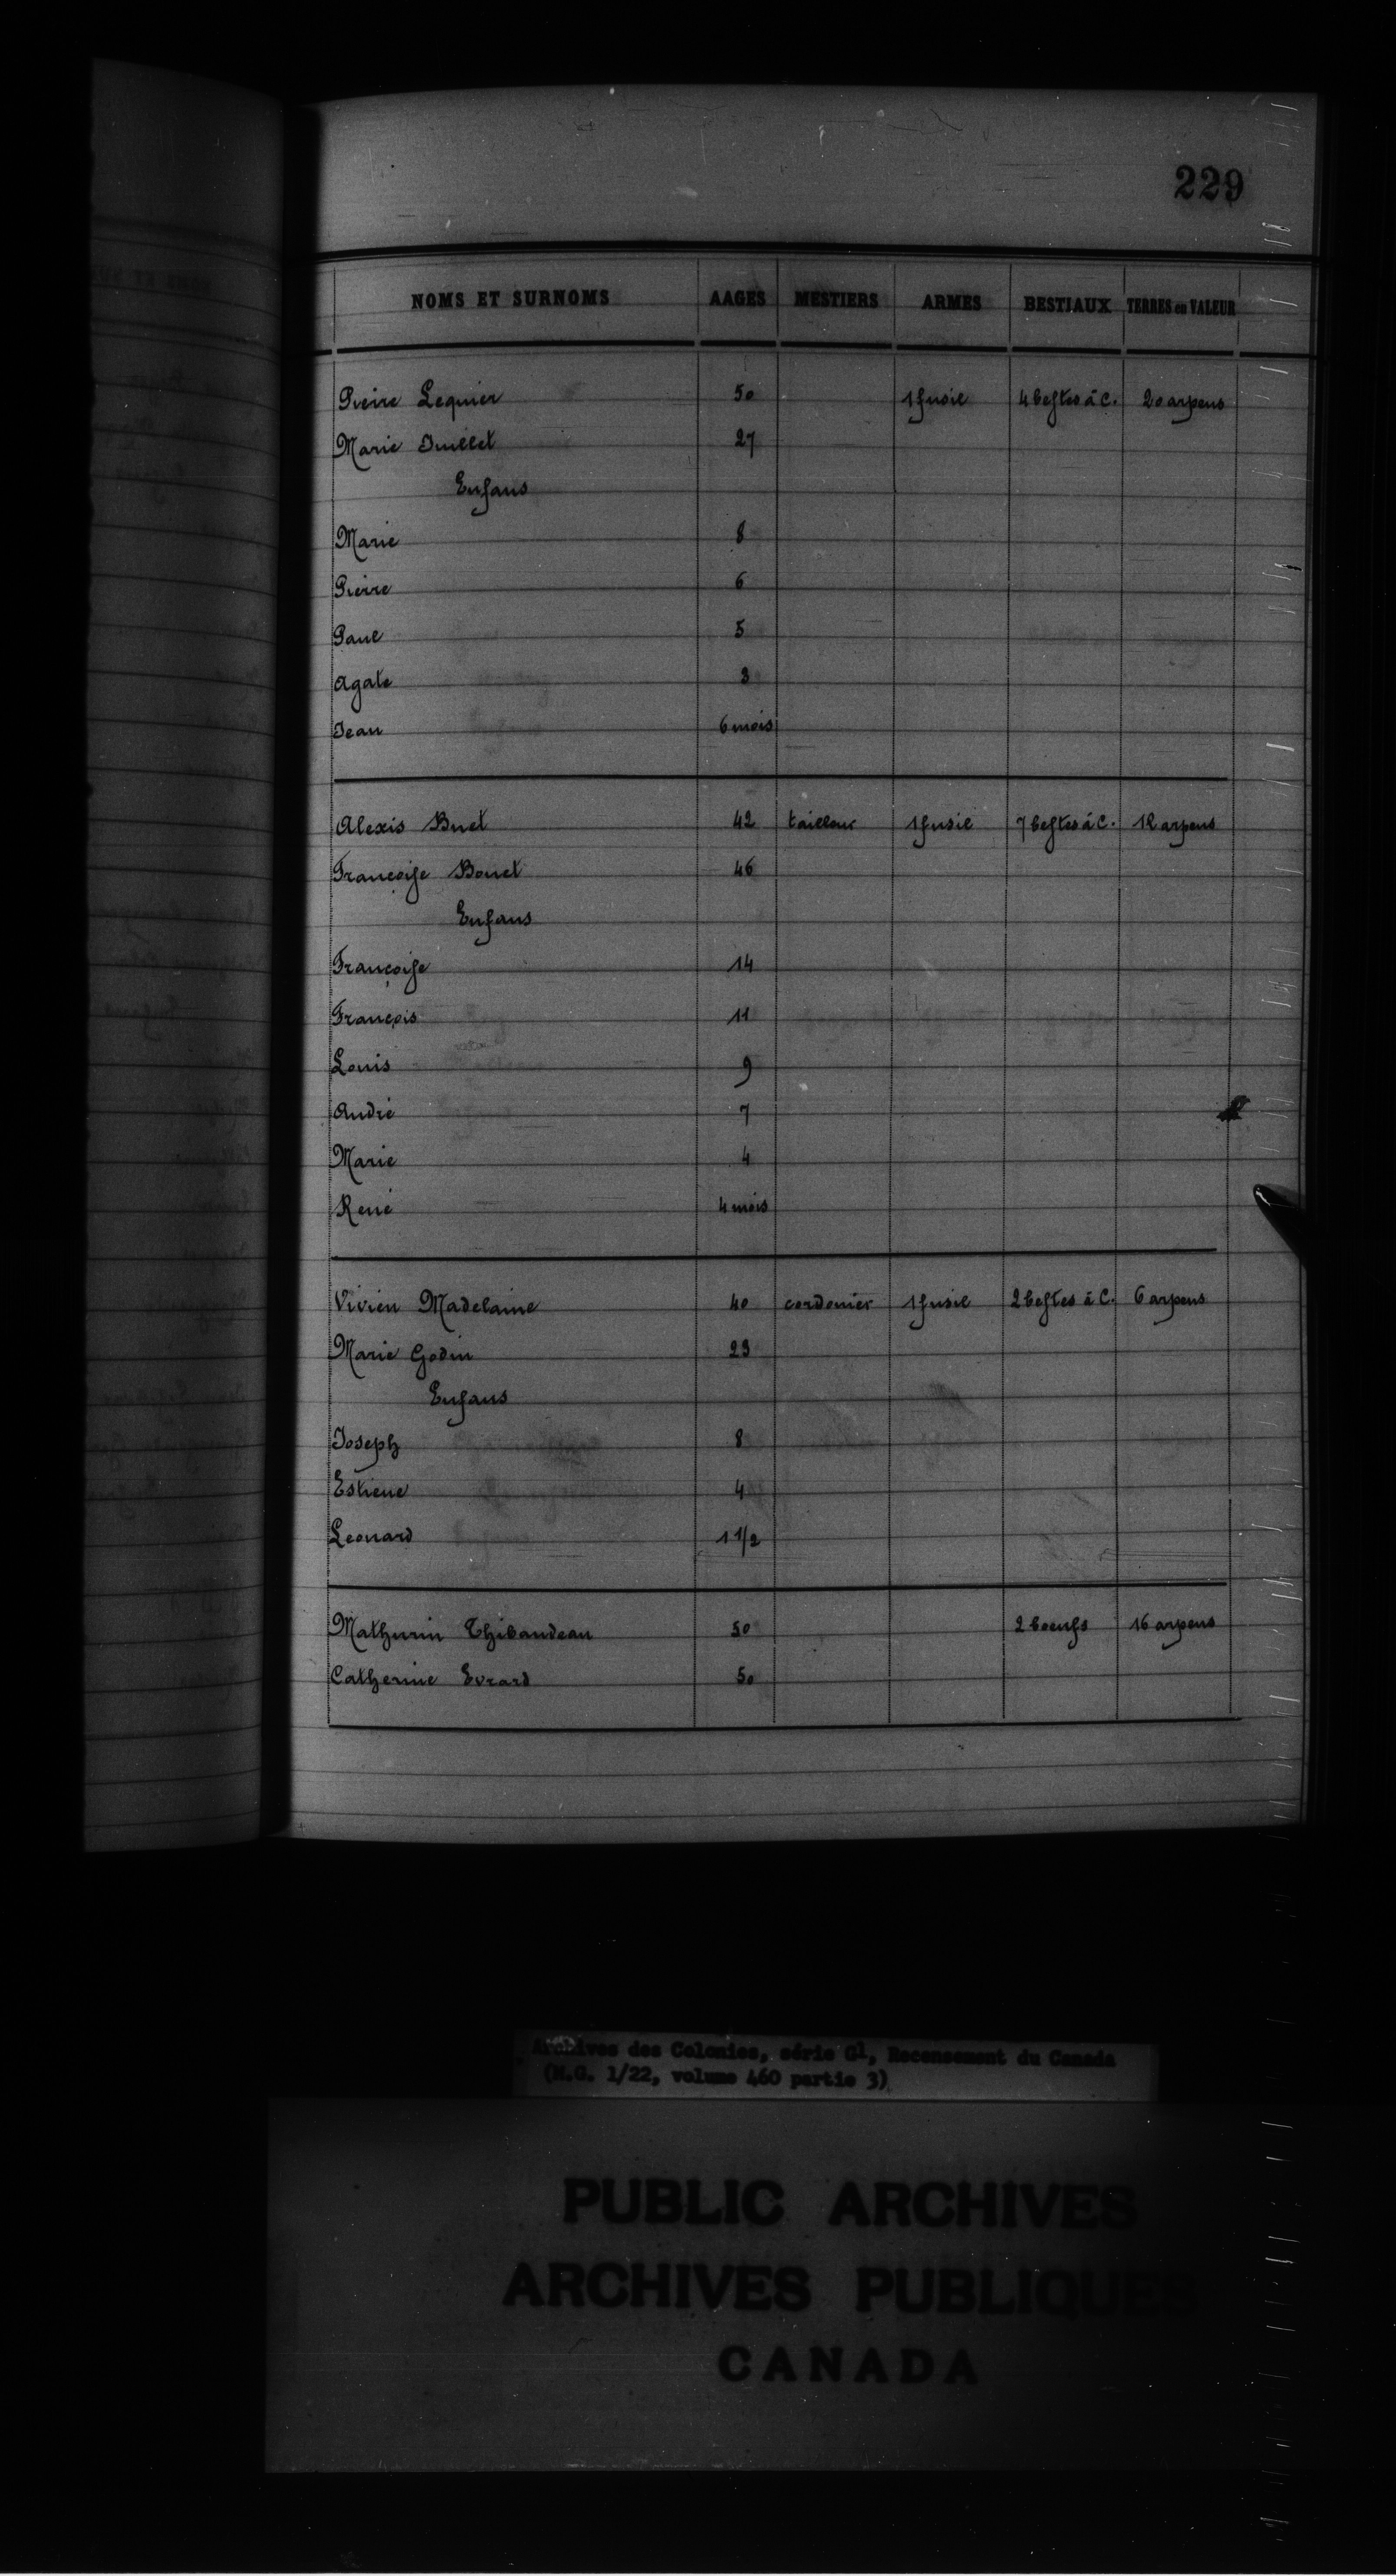 229
NOMS ET SURNOMS AAGES MESTIERS ARMES BESTIAUX TERRES en VALEUR
Pierre Lequier 50 1 fusil 4 bestes à C. 20 arpens
Marie Juillet 27
Enfans
Marie 8
Pierre 6
Paul 5
Agate 3
Jean 6 mois
Alexis Buet 42 tailleur 1 fusil 7 bestes à C. 12 arpens
Françoise Bouet 46
Enfans
Françoise 14
François 11
Louis 9
André 7
Marie 4
René 4 mois
Vivien Madelaine 40 cordonier 1 fusil 2 bestes à C. 6 arpens
Marie Godin 23
Enfans
Joseph 8
Estiene 4
Leonard 1 1/2
Mathurin Thibaudeau 50 2 boeufs 16 arpens
Catherine Evrard 50
Archives des Colonies, série G1, Recensement du Canada
(M.G. 1/22, volume 460 partie 3)
PUBLIC ARCHIVES
ARCHIVES PUBLIQUES
CANADA